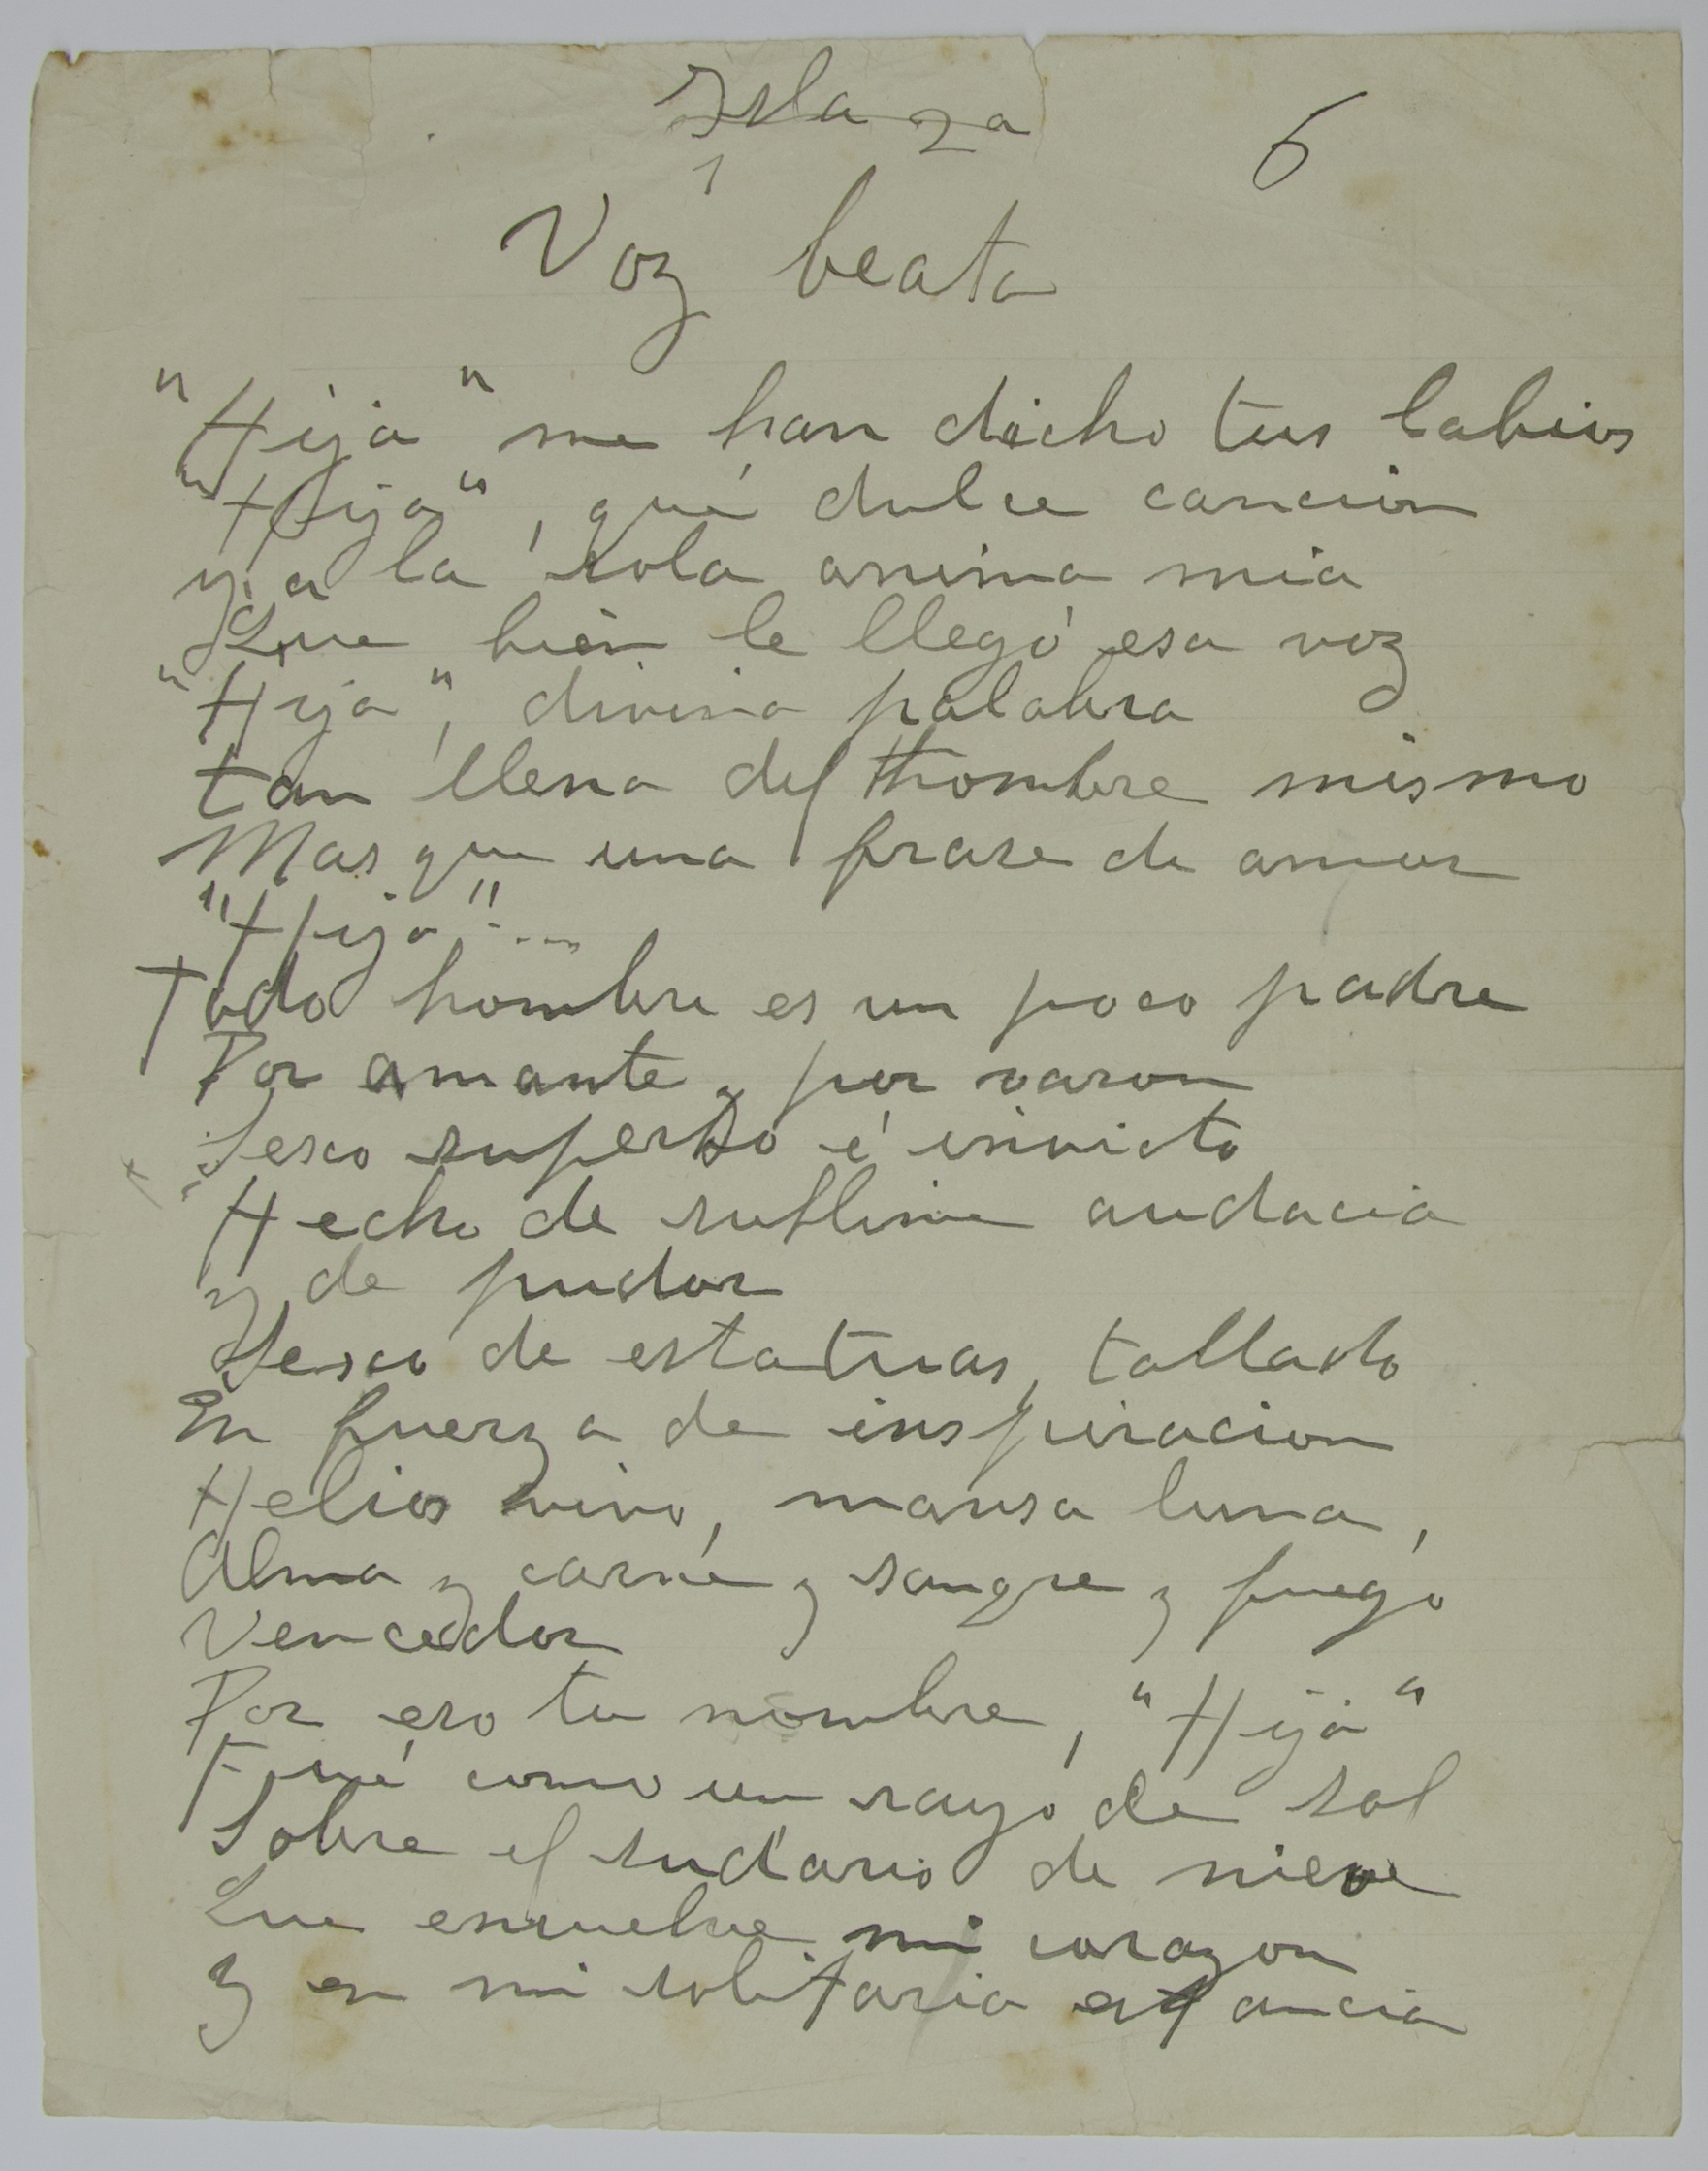 6
1
Voz beata
"Hija" me han dicho tus labios
"Hija", qué dulce cancion
y a la sola anima mia
Que bien le llegó esa voz
"Hija", divina palabra
tan llena del hombre mismo
Mas que una frase de amor
"Hija"....
Todo hombre es un poco padre
Por amante y por varon
Sexo superbo é invicto
Hecho de sublime audacia
y de pudor
Sexo de estatuas, tallado
En fuerza de inspiracion
Helios vivo, mansa luna,
Alma y carne y sangre y fuego
Vencedor
Por eso tu nombre, "Hija"
Fué como un rayo de sol
Sobre el sudario de nieve
Que envuelve mi corazon
Y en mi solitaria estancia